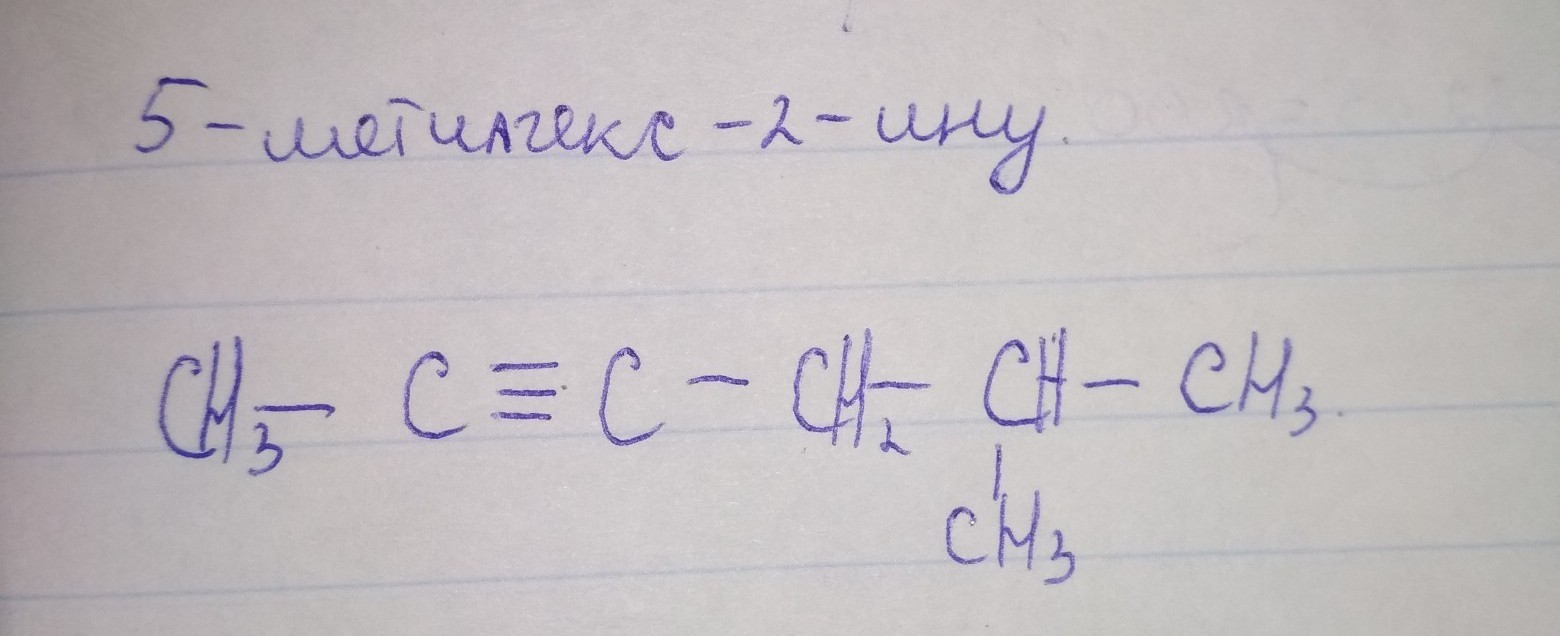 5-метилгекс-2-ину.
CH₃ — C ≡ C — CH₂ — CH — CH₃.
|
CH₃